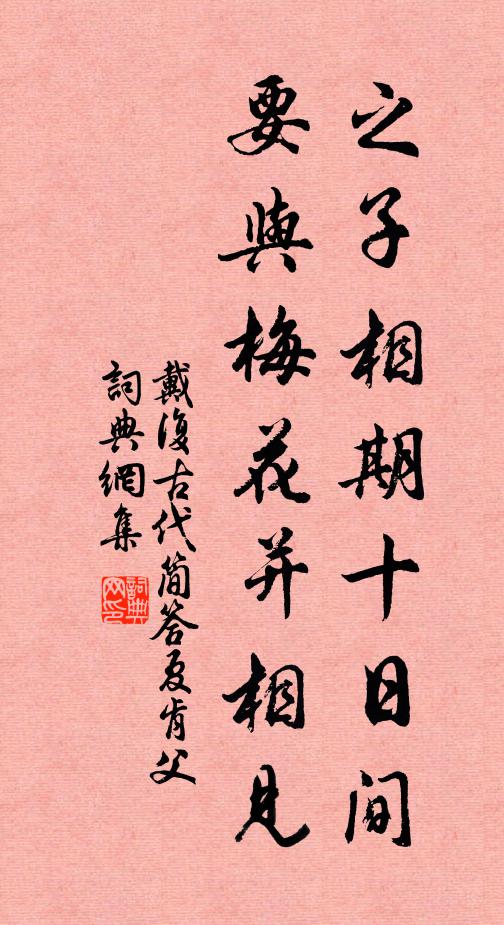 之子相期十日间
要與梅花并相見
戴復古代简答夏肯父
詞典網集
詞典网印